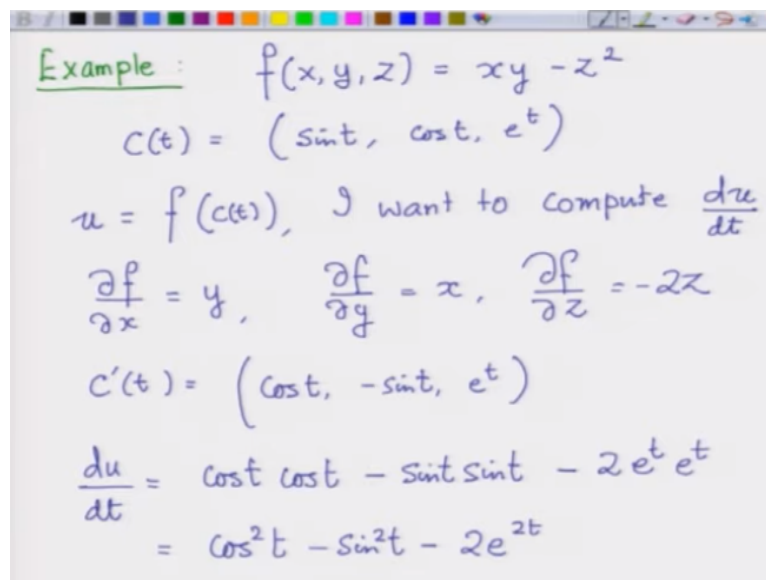 Example : f(x, y, z) = xy - z²
C(t) = (sint, cost, eᵗ)
u = f(C(t)), I want to compute du/dt
∂f/∂x = y, ∂f/∂y = x, ∂f/∂z = -2z
C'(t) = (cost, -sint, eᵗ)
du/dt = cost cost - sint sint - 2eᵗ eᵗ
= cos²t - sin²t - 2e²ᵗ